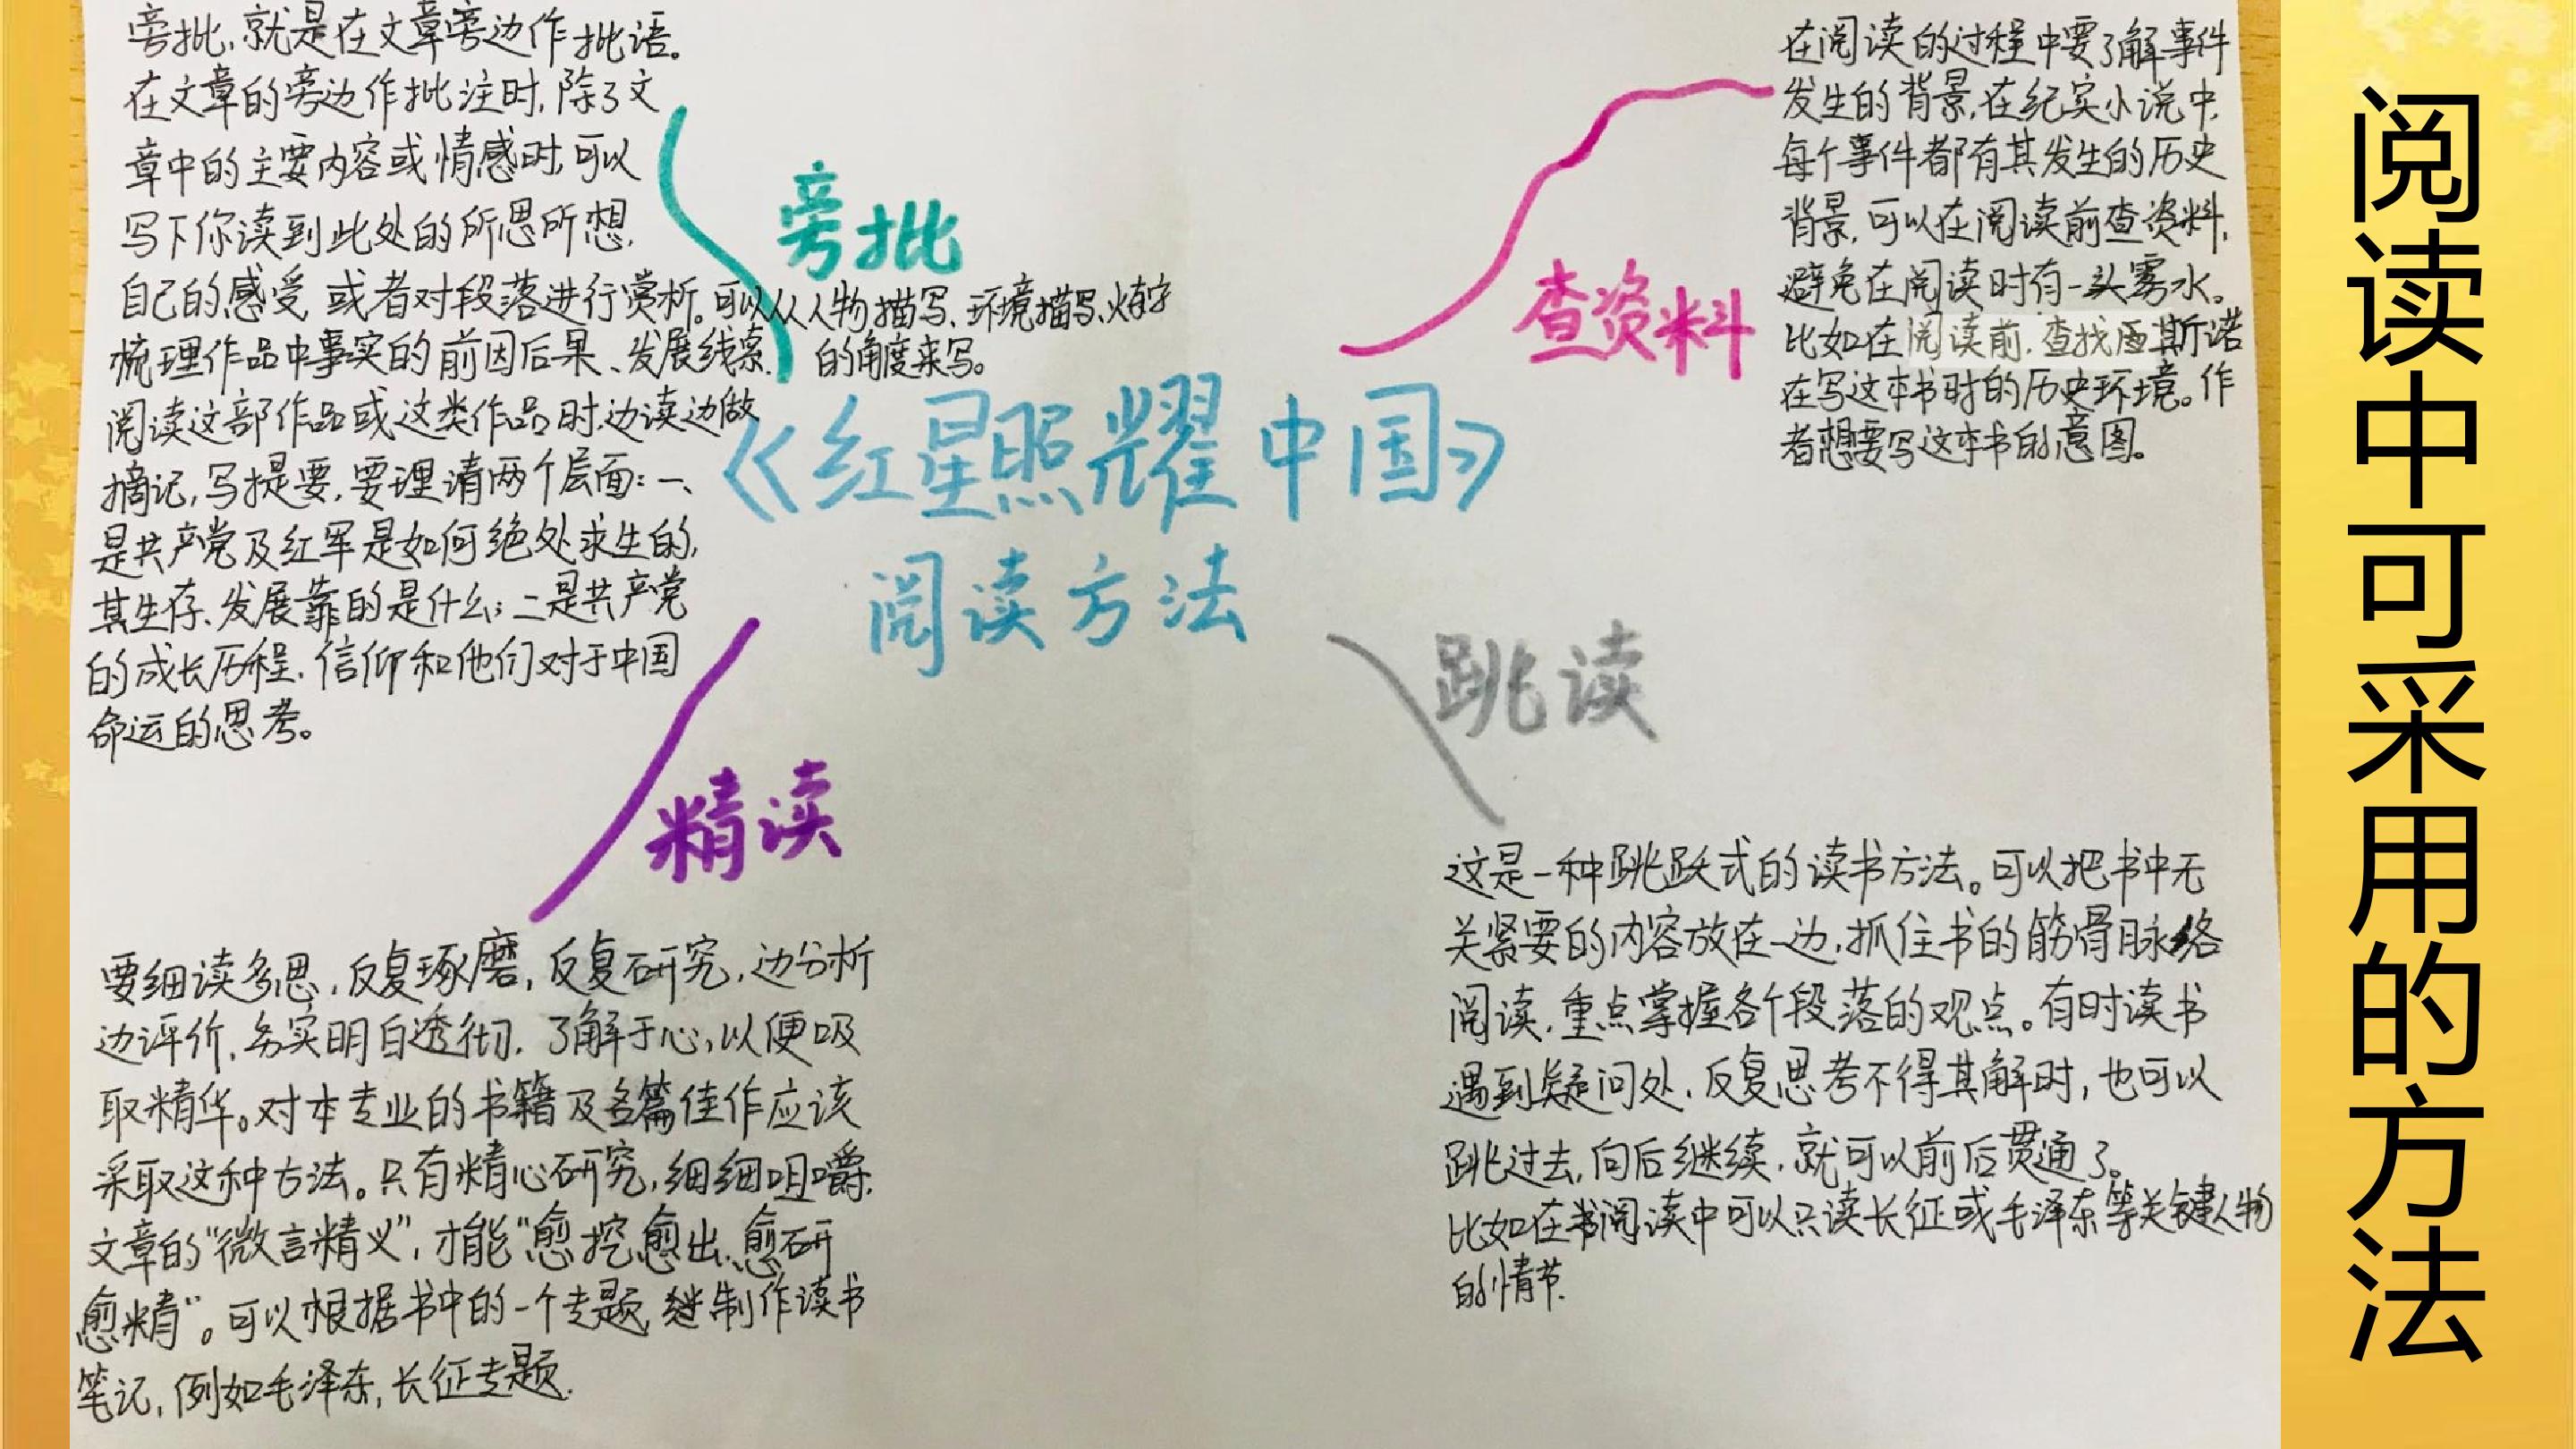 旁批,就是在文章旁边作批语。
在文章的旁边作批注时,除了文
章中的主要内容或情感时,可以
写下你读到此处的所思所想,
自己的感受,或者对段落进行赏析。可以从人物描写、环境描写、
的角度来写。
梳理作品中事实的前因后果、发展线索,
阅读这部作品或这类作品时,边读边做
摘记,写提要,要理清两个层面:一、
是共产党及红军是如何绝处求生的,
其生存、发展靠的是什么;二是共产党
的成长历程,信仰和他们对于中国
命运的思考。
旁批
查资料
在阅读的过程中要了解事件
发生的背景,在纪实小说中,
每个事件都有其发生的历史
背景,可以在阅读前查资料,
避免在阅读时有一头雾水。
比如在阅读前,查找 斯诺
在写这本书时的历史环境。作
者想要写这本书的意图。
《红星照耀中国》
阅读方法
精读
要细读多思,反复琢磨,反复研究,边分析
边评价,务实明白透彻,了解于心,以便吸
取精华。对本专业的书籍及名篇佳作应该
采取这种方法。只有精心研究,细细咀嚼,
文章的“微言精义”,才能“愈挖愈出,愈研
愈精”。可以根据书中的一个专题, 制作读书
笔记,例如毛泽东,长征专题.
跳读
这是一种跳跃式的读书方法。可以把书中无
关紧要的内容放在一边,抓住书的筋骨脉络
阅读,重点掌握各个段落的观点。有时读书
遇到疑问处,反复思考不得其解时,也可以
跳过去,向后继续,就可以前后贯通了。
比如在书阅读中可以只读长征或毛泽东等关键人物
的情节.
阅读中可采用的方法